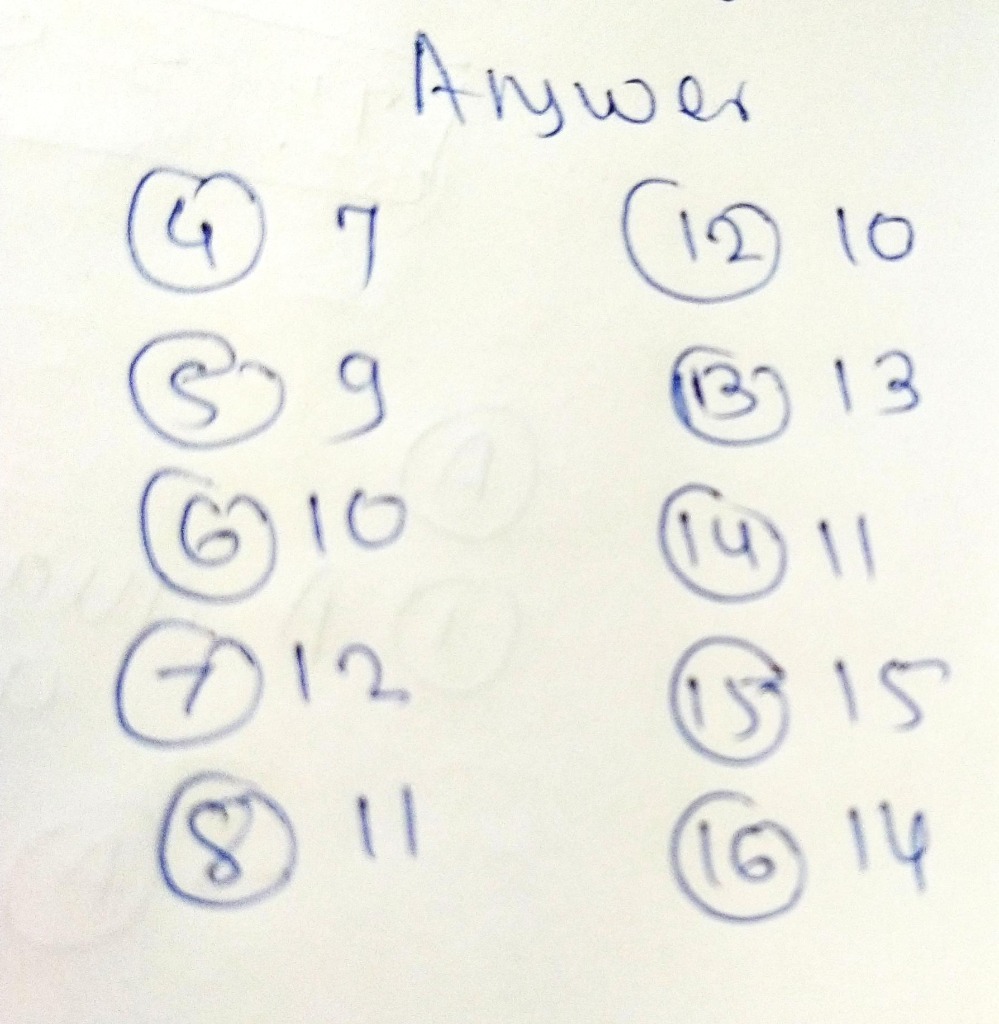 Answer
④ 7 ⑫ 10
⑤ 9 ⑬ 13
⑥ 10 ⑭ 11
⑦ 12 ⑮ 15
⑧ 11 ⑯ 14